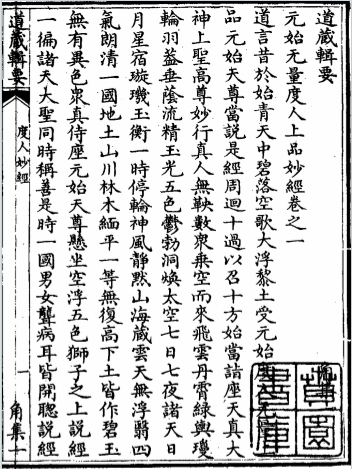 道藏輯要
元始無量度人上品妙經卷之一
道言昔於始青天中碧落空歌大浮黎土受元始
品元始天尊當說是經周迴十過以召十方始當詣座天真大
神上聖高尊妙行真人無鞅數衆乗空而來飛雲丹霄綠輿瓊
輪羽葢垂蔭流精玉光五色鬱勃洞煥太空七日七夜諸天日
月星宿璇璣玉衡一時停輪神風靜黙山海藏雲天無浮翳四
氣朗清一國地土山川林木緬平一等無復高下土皆作碧玉
無有異色衆真侍座元始天尊懸坐空浮五色獅子之上說經
一徧諸天大聖同時稱善是時一國男女聾病耳皆開聰說經
道藏輯要
度人妙經
一
角集一